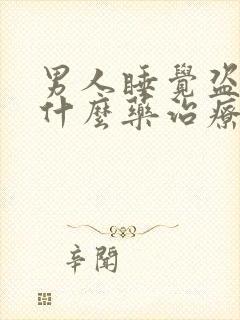 男人睡覺盜
什麼藥治療
辛聞